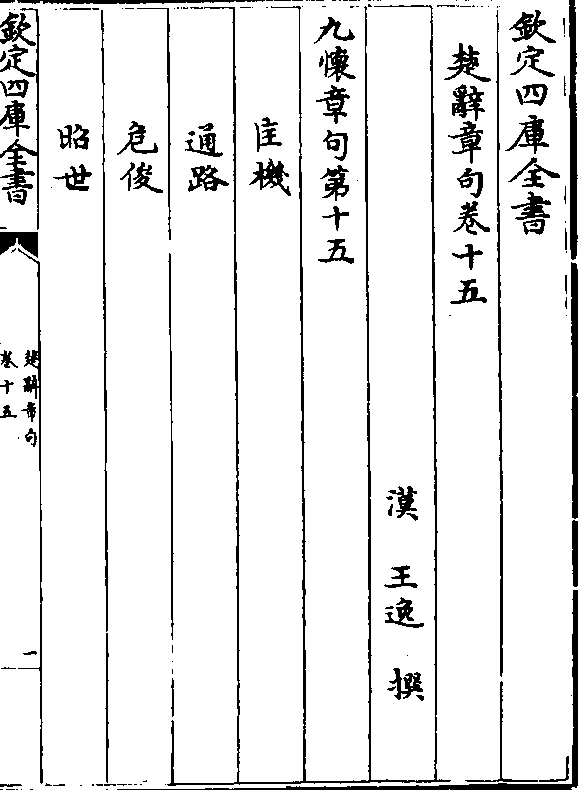 欽定四庫全書
楚辭章句卷十五
漢　王逸　撰
九懷章句第十五
匡機
通路
危俊
昭世
欽定四庫全書
楚辭章句
卷十五
一